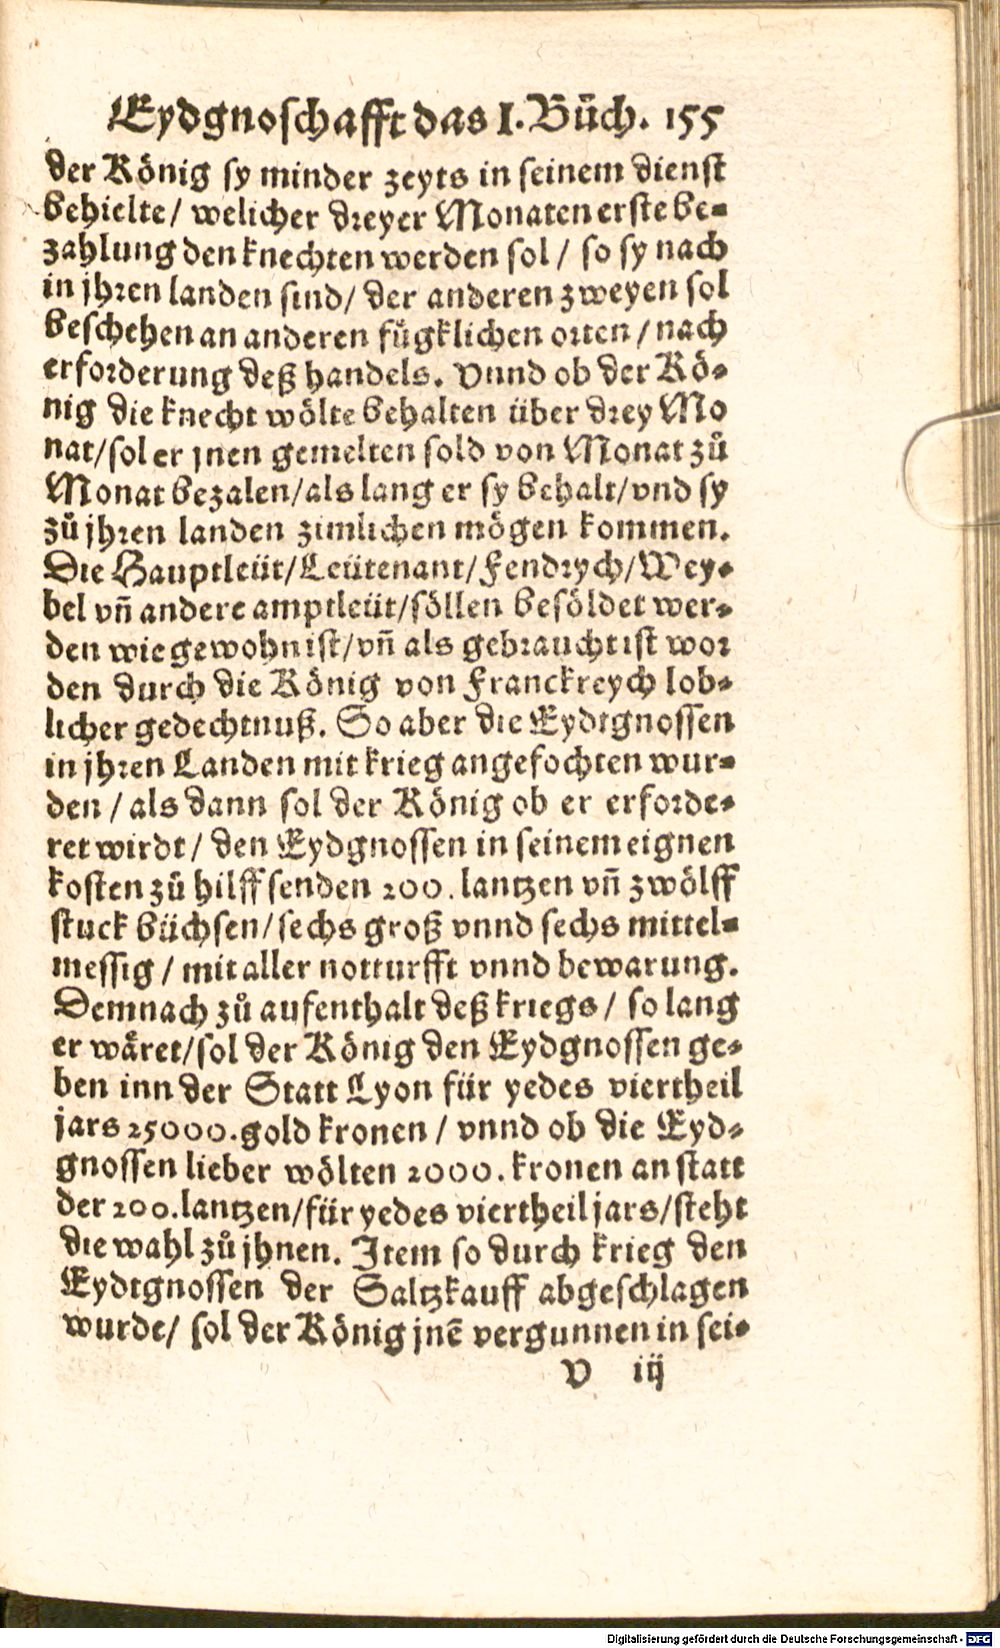 Eydgnoschafft das I. Bůch. 155
der König sy minder zeyts in seinem dienst
behielte/ welicher dreyer Monaten erste be-
zahlung den knechten werden sol/ so sy nach
in jhren landen sind/ der anderen zweyen sol
beschehen an anderen fůgklichen orten/ nach
erforderung deß handels. Vnnd ob der Kö-
nig die knecht wölte behalten über drey Mo
nat/ sol er jnen gemelten sold von Monat zů
Monat bezalen/ als lang er sy behalt/ vnd sy
zů jhren landen zimlichen mögen kommen.
Die Hauptleüt/ Leütenant/ Fendrych/ Wey-
bel vñ andere amptleüt/ söllen besöldet wer-
den wie gewohn ist/ vñ als gebraucht ist wor
den durch die König von Franckreych lob-
licher gedechtnuß. So aber die Eydtgnossen
in jhren Landen mit krieg angefochten wur-
den/ als dann sol der König ob er erforde-
ret wirdt/ den Eydgnossen in seinem eignen
kosten zů hilff senden 200. lantzen vñ zwölff
stuck büchsen/ sechs groß vnnd sechs mittel-
messig/ mit aller notturfft vnnd bewarung.
Demnach zů aufenthalt deß kriegs/ so lang
er wäret/ sol der König den Eydgnossen ge-
ben inn der Statt Lyon für yedes viertheil
jars 25000. gold kronen/ vnnd ob die Eyd-
gnossen lieber wölten 2000. kronen an statt
der 200. lantzen/ für yedes viertheil jars/ steht
die wahl zů jhnen. Item so durch krieg den
Eydtgnossen der Saltzkauff abgeschlagen
wurde/ sol der König jnē vergunnen in sei-
V iij
Digitalisierung gefördert durch die Deutsche Forschungsgemeinschaft - DFG